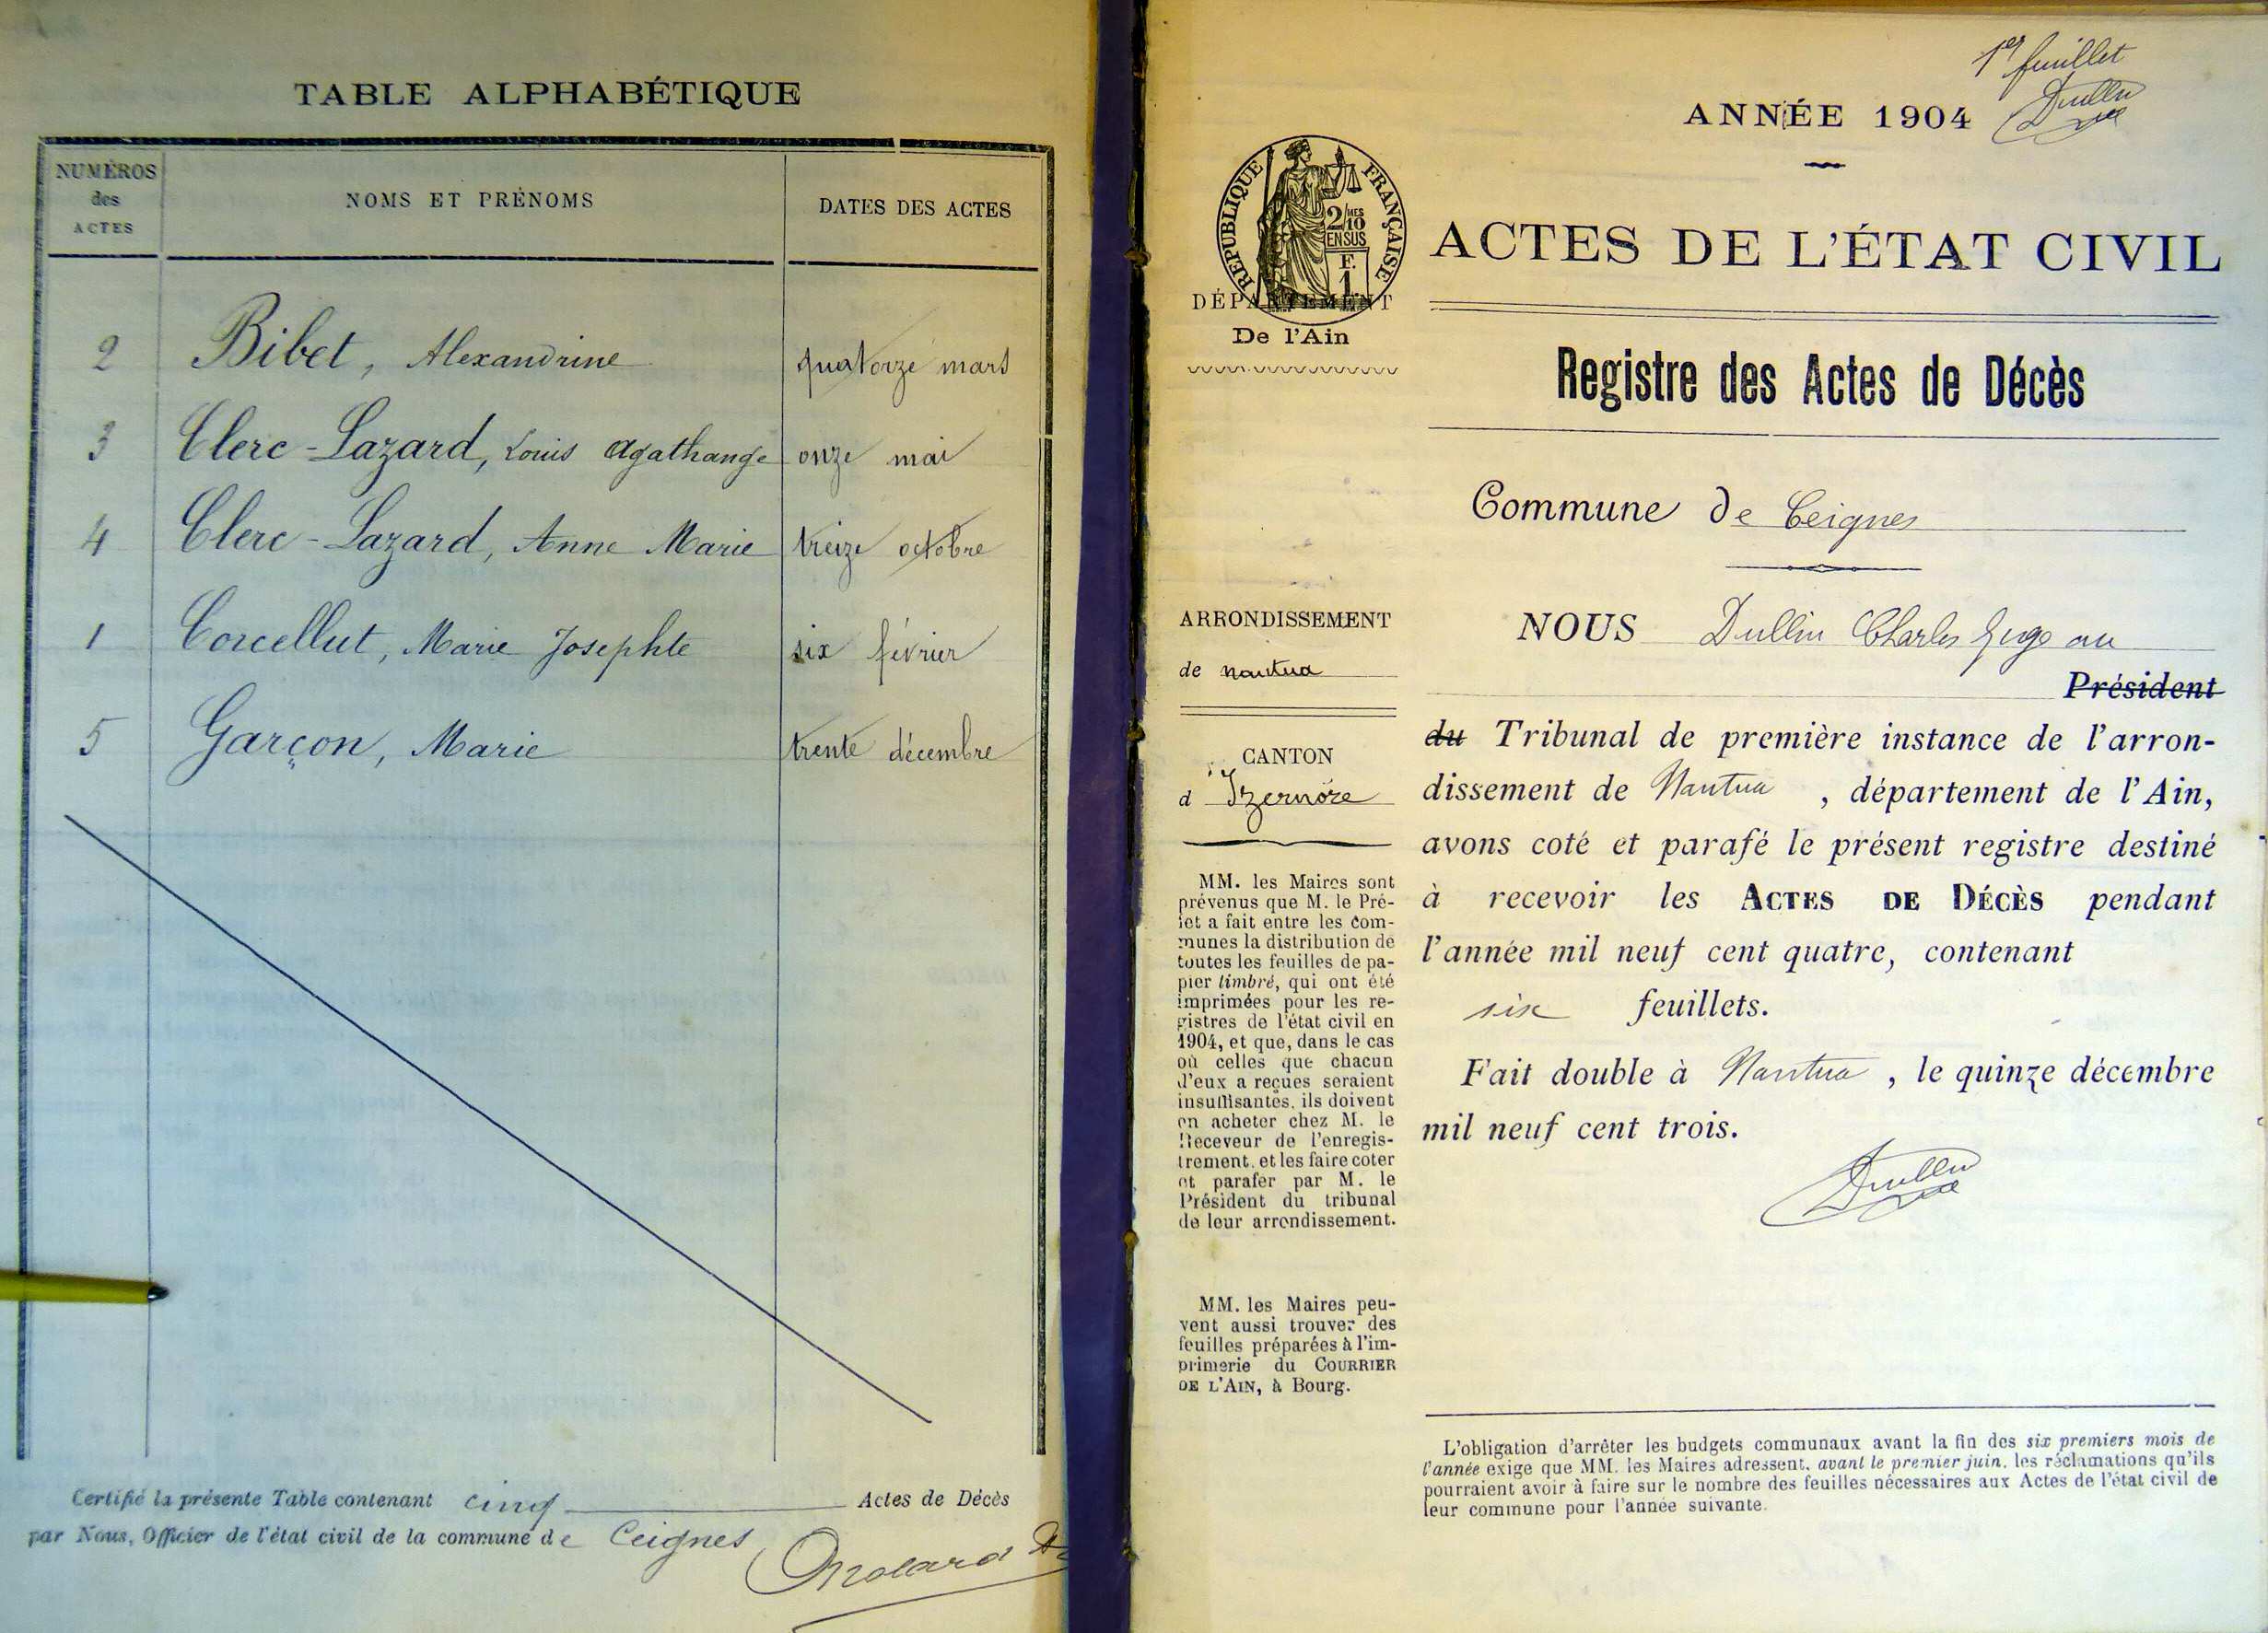 TABLE ALPHABÉTIQUE
NUMÉROS
des
ACTES
NOMS ET PRÉNOMS
DATES DES ACTES
2 Bibet, Alexandrine quatorze mars
3 Clerc-Lazard, Louis Agathange onze mai
4 Clerc-Lazard, Anne Marie treize octobre
1 Corcellut, Marie Josephte six février
5 Garçon, Marie trente décembre
Certifié la présente Table contenant cinq Actes de Décès
par Nous, Officier de l'état civil de la commune de Ceignes
1er feuillet
Dullin
ANNÉE 1904
RÉPUBLIQUE FRANÇAISE
2/10 MES
EN SUS
F.
1.
DÉPARTEMENT
De l'Ain
ACTES DE L'ÉTAT CIVIL
Registre des Actes de Décès
Commune de Ceignes
ARRONDISSEMENT
de Nantua
CANTON
d'Izernore
MM. les Maires sont
prévenus que M. le Pré-
fet a fait entre les com-
munes la distribution de
toutes les feuilles de pa-
pier timbré, qui ont été
imprimées pour les re-
gistres de l'état civil en
1904, et que, dans le cas
où celles que chacun
d'eux a reçues seraient
insuffisantes, ils doivent
en acheter chez M. le
Receveur de l'enregis-
trement, et les faire coter
et parafer par M. le
Président du tribunal
de leur arrondissement.
MM. les Maires peu-
vent aussi trouver des
feuilles préparées à l'im-
primerie du COURRIER
DE L'AIN, à Bourg.
NOUS Dullin Charles Juge au
Président
du Tribunal de première instance de l'arron-
dissement de Nantua, département de l'Ain,
avons coté et parafé le présent registre destiné
à recevoir les ACTES DE DÉCÈS pendant
l'année mil neuf cent quatre, contenant
six feuillets.
Fait double à Nantua, le quinze décembre
mil neuf cent trois.
Dullin
L'obligation d'arrêter les budgets communaux avant la fin des six premiers mois de
l'année exige que MM. les Maires adressent, avant le premier juin, les réclamations qu'ils
pourraient avoir à faire sur le nombre des feuilles nécessaires aux Actes de l'état civil de
leur commune pour l'année suivante.